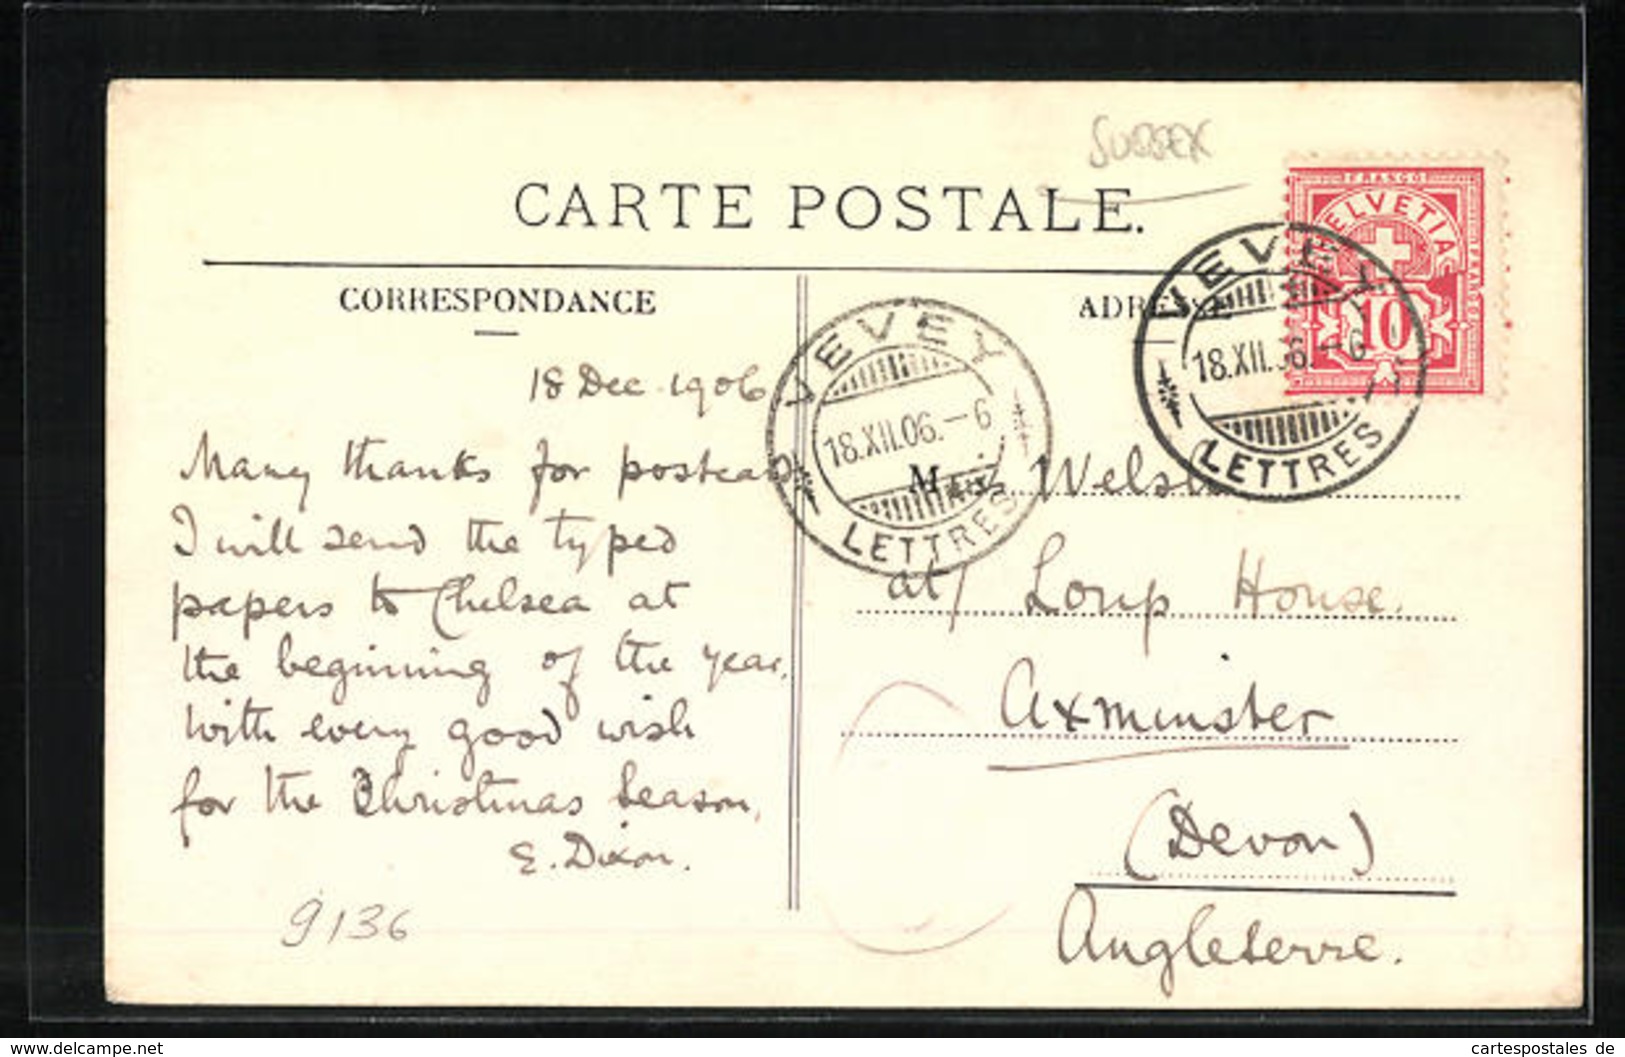 SUSSEX
CARTE POSTALE.
CORRESPONDANCE
ADRESSE
FRANCO
HELVETIA
FRANCO
10
VEVEY
18.XII.06.-6
LETTRES
VEVEY
18.XII.06.-6
LETTRES
18 Dec. 1906
Many thanks for postcard
I will send the typed
papers to Chelsea at
the beginning of the year.
With every good wish
for the Christmas Season.
E. Dixon.
9136
M Welsh
at House.
Axminster
(Devon)
Angleterre.
www.delcampe.net
cartespostales_de